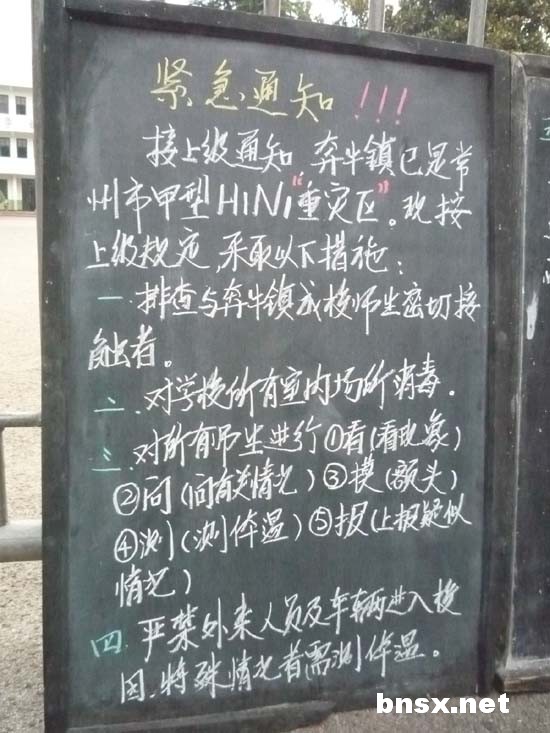 紧急通知!!!
接上级通知,奔牛镇已是常
州市甲型H1N1"重灾区"。现按
上级规定,采取以下措施:
一.排查与奔牛镇或校师生密切接
触者。
二.对学校所有室内场所消毒.
三.对所有师生进行①看(看现象)
②问(问有关情况)③摸(额头)
④测(测体温)⑤报(上报疑似
情况)
四.严禁外来人员及车辆进入校
园.特殊情况者需测体温。
bnsx.net